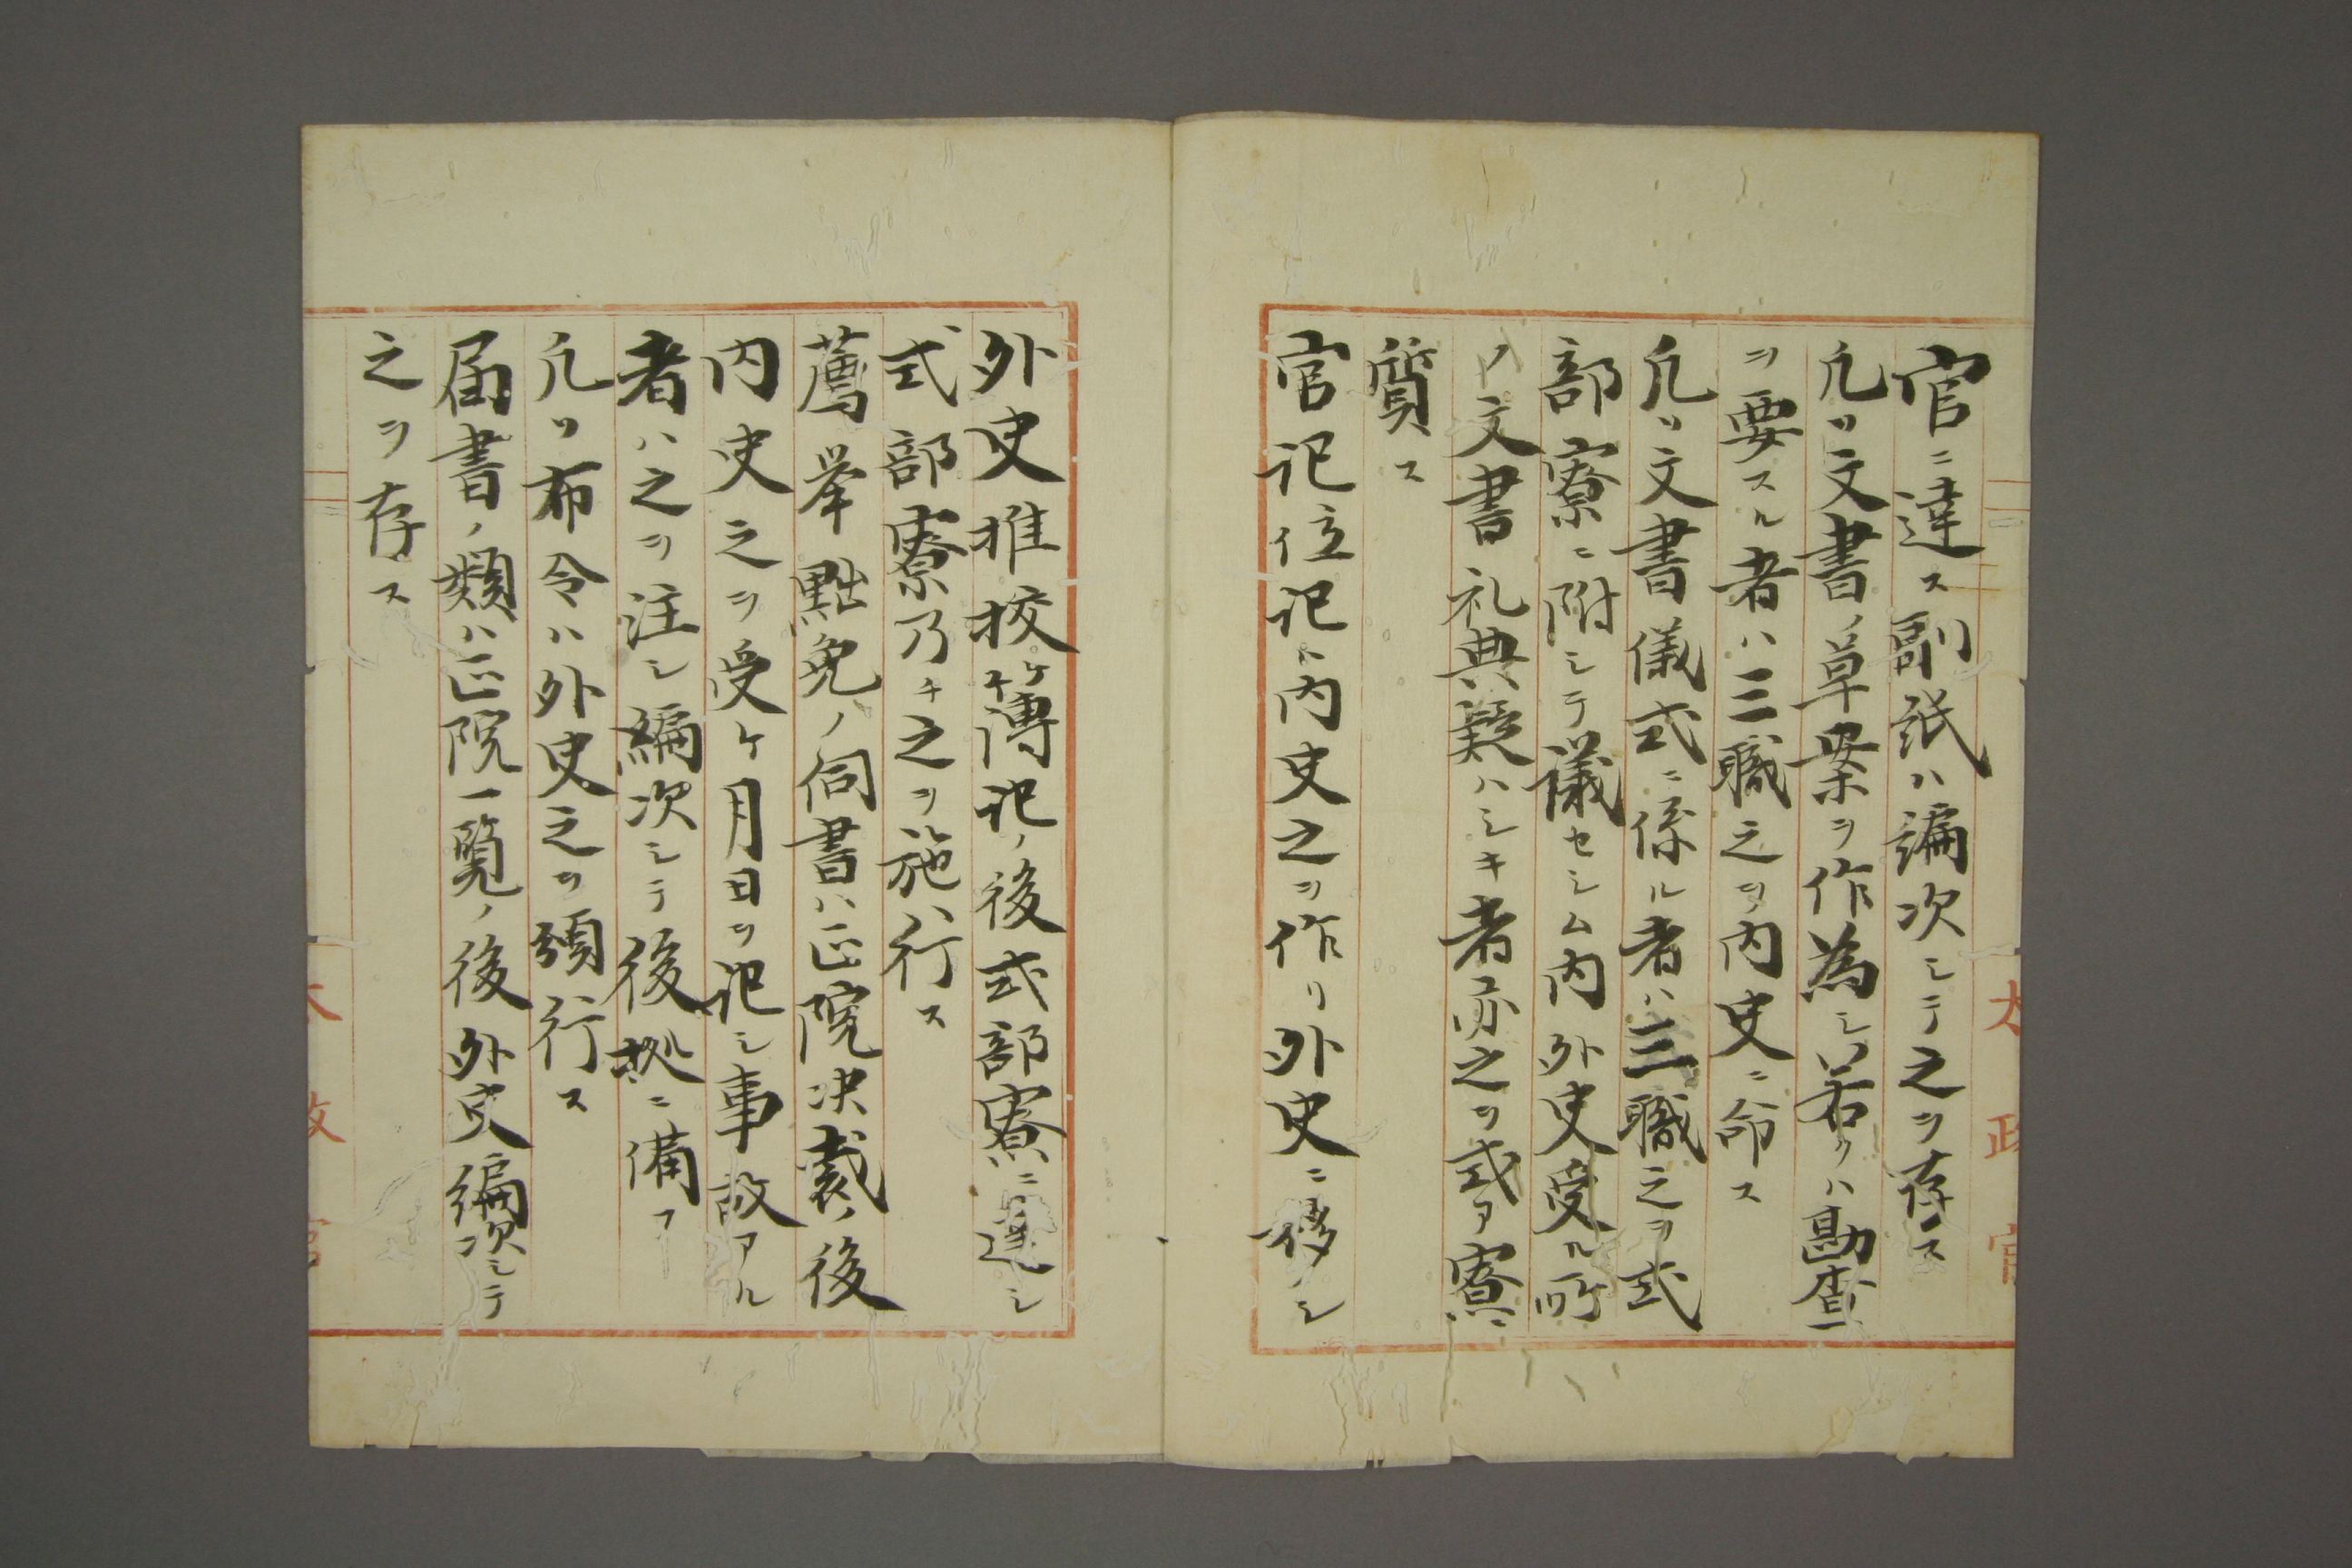 官ニ達ス副紙ハ編次シテ之ヲ存ス
凡ソ文書ノ草案ヲ作為シ若クハ勘査
ヲ要スル者ハ三職之ヲ内史ニ命ス
凡ソ文書儀式ニ係ル者ハ三職之ヲ式
部寮ニ附シテ議セシム内外史受ル所
ノ文書礼典疑ハシキ者亦之ヲ式ア寮ニ
質ス
官記位記ハ内史之ヲ作リ外史ニ移シ
太政官
外史推校簿記ノ後式部寮ニ達シ
式部寮乃チ之ヲ施行ス
薦挙黜免ノ伺書ハ正院决裁ノ後
内史之ヲ受ケ月日ヲ記シ事故アル
者ハ之ヲ注シ編次シテ後拠ニ備フ
凡ソ布令ハ外史之ヲ頒行ス
届書ノ類ハ正院一覧ノ後外史編次シテ
之ヲ存ス
太政官